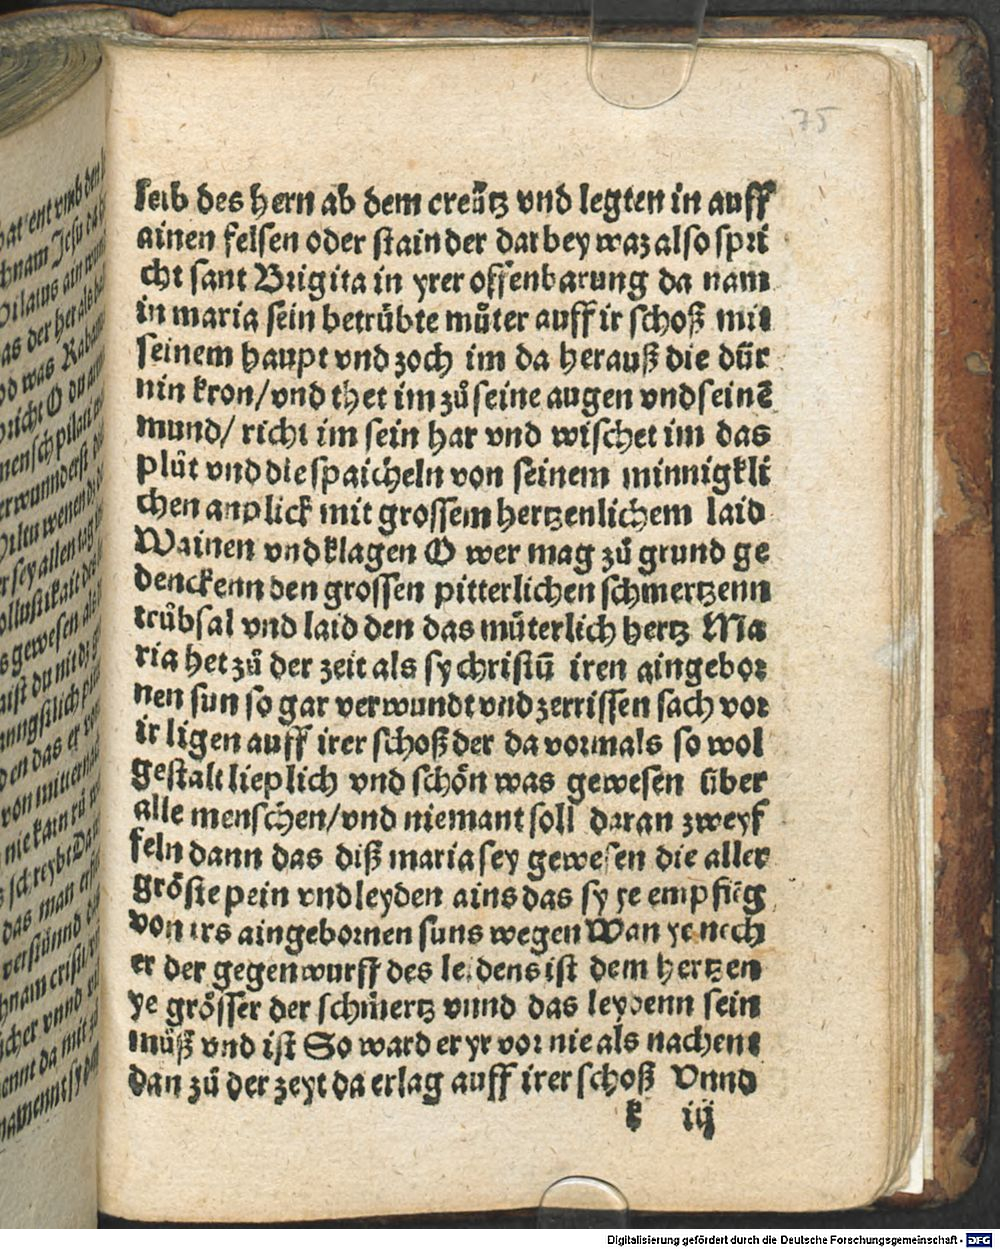 75
leib des hern ab dem creütz vnd legten in auff
ainen felsen oder stain der dar bey waz also spri
cht sant Brigita in yrer offenbarung da nam
in maria sein betrůbte můter auff ir schoß mit
seinem haupt vnd zoch im da herauß die dür
nin kron/vnd thet im zů seine augen vnd seinē
mund/ richt im sein har vnd wischet im das
plůt vnd die spaicheln von seinem minnigkli
chen anplick mit grossem hertzenlichem laid
Wainen vnd klagen O wer mag zů grund ge
denckenn den grossen pitterlichen schmertzenn
trůbsal vnd laid den das můterlich hertz Ma
ria het zů der zeit als sy christū iren aingebor
nen sun so gar verwundt vnd zerrissen sach vor
ir ligen auff irer schoß der da vormals so wol
gestalt lieplich vnd schön was gewesen über
alle menschen/vnd niemant soll daran zweyf
feln dann das diß maria sey gewesen die aller
gröste pein vnd leyden ains das sy ye empfieg
von irs aingebornen suns wegen Wan ye nech
er der gegenwurff des leidens ist dem hertzen
ye grösser der schmertz vnnd das leydenn sein
můß vnd ist So ward er yr vor nie als nachent
dan zů der zeyt da er lag auff irer schoß Vnnd
k iij
Digitalisierung gefördert durch die Deutsche Forschungsgemeinschaft - DFG